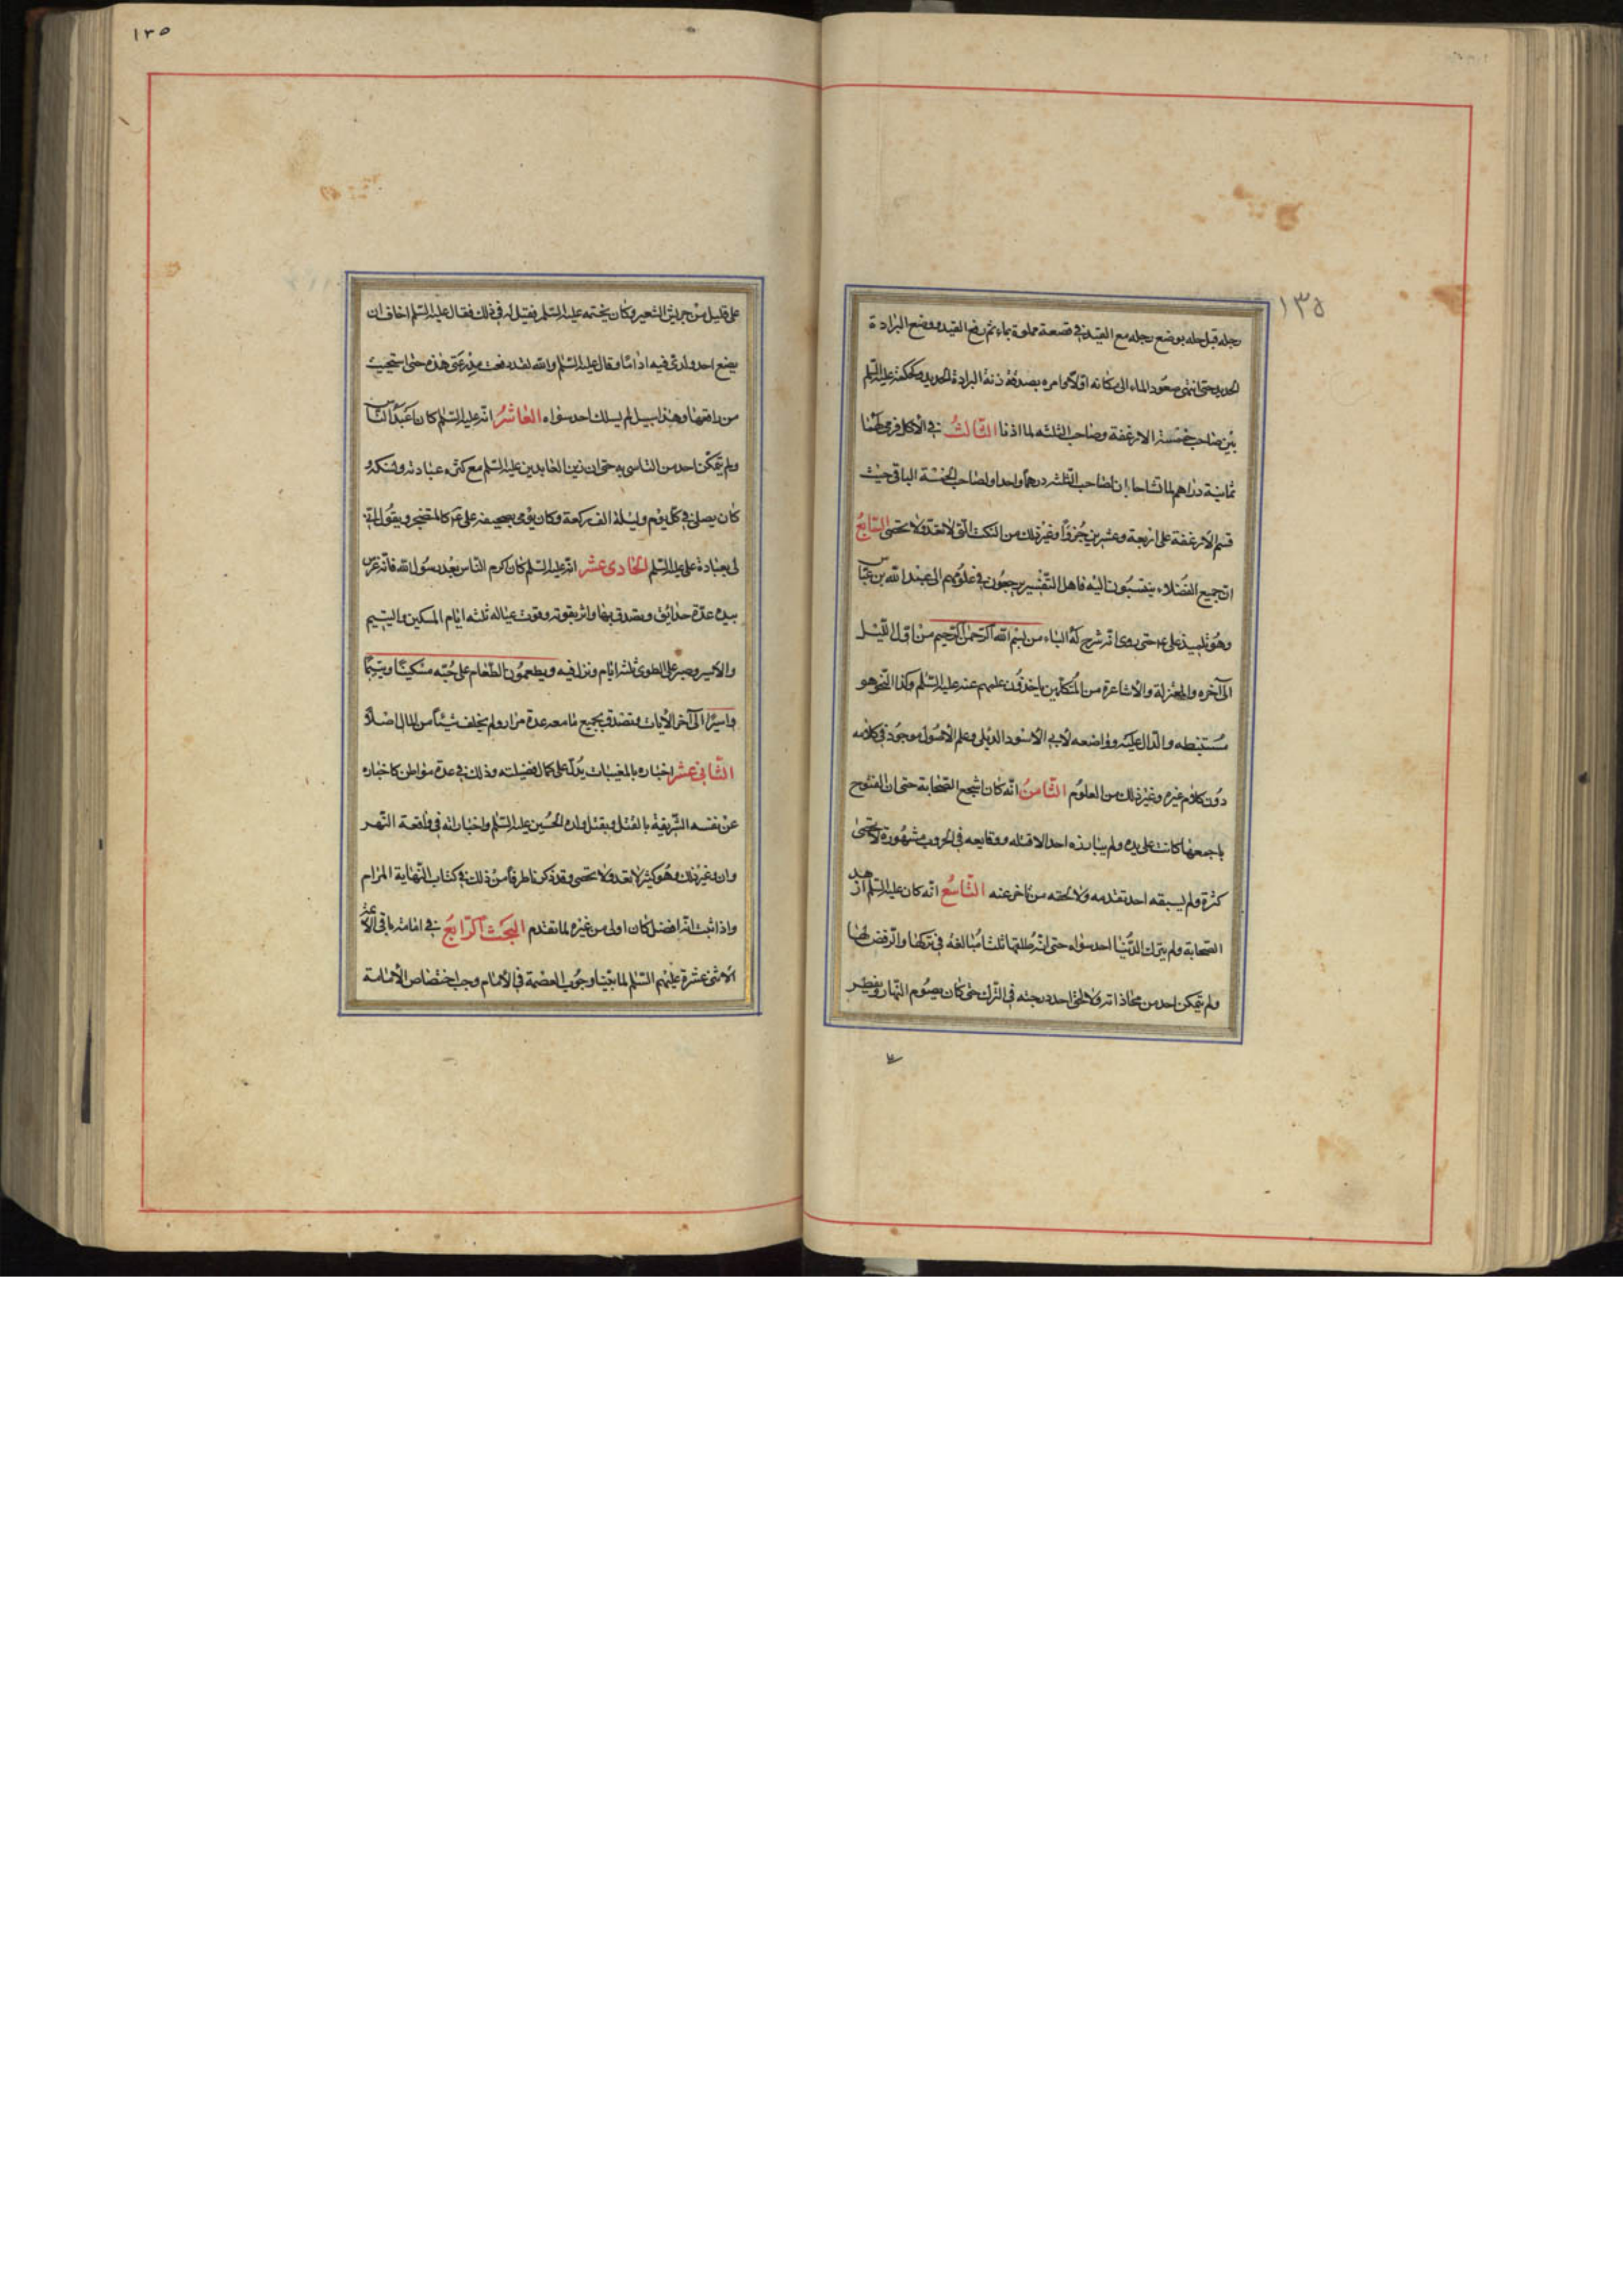 ١٣٥
رجله قبل حله بوضع رجله مع القيد في قصعة مملوة بماء ثم رفع القيد ووضع البرادة
الحديد حتى انتهى صعود الماء الى مكانه اولا ثم امره بصدقة زنة البرادة الحديد وكحكمه عليه السلم
بين صاحب خمسة الارغفة وصاحب الثلثه لما اذنا الثالث في الاكل فرمى لهما
ثمانية دراهم لما تشاحا بان لصاحب الثلثه درهما واحدا ولصاحب الخمسة الباقي حيث
قسم الارغفة على اربعة وعشرين جزوا وغير ذلك من النكت التي لا تعد ولا تحصى السابع
ان جميع الفضلاء ينتسبون اليه فاهل التفسير يرجعون في علومهم الى عبد الله بن عباس
وهو تلميذ على ع حتى روى انه شرح له الباء من بسم الله الرحمن الرحيم من اول الليل
الى آخره والمعتزلة والاشاعرة من المتكلمين ياخذون علمهم عنه عليه السلم وكذا النحو هو
مستنبطه والدال عليه وواضعه لابي الاسود الديلي وعلم الاصول موجود في كلامه
دون كلام غيره وغير ذلك من العلوم الثامن انه كان اشجع الصحابة حتى ان الفتوح
باجمعها كانت على يده ولم يبارزه احد الا قتله ووقايعه في الحروب مشهورة لا تحصى
كثرة ولم يسبقه احد تقدمه ولا لحقه من تاخر عنه التاسع انه كان عليه السلم ازهد
الصحابة ولم يترك الدنيا احد سواه حتى انه طلقها ثلثا مبالغة في تركها والرفض لها
ولم يتمكن احد من محاذاته ولا لحق احد درجته في الترك حتى كان يصوم النهار ويفطر
١٣٥
على قليل من جريش الشعير وكان يختمه عليه السلم فقيل له في ذلك فقال عليه السلم اخاف ان
يضع احد ولدى فيه اداما وقال عليه السلم والله لقد رقعت مدرعتى هذه حتى استحييت
من راقعها وهذا سبيل لم يسلك احد سواه العاشر انه عليه السلم كان اعبد الناس
ولم يتمكن احد من التاسى به حتى ان زين العابدين عليه السلم مع كثرة عبادته
كان يصلى في كل يوم وليلة الف ركعة وكان يومى بصحيفه على ع كالمتضجر ويقول
لى بعبادة على عليه السلم الحادى عشر انه عليه السلم كان اكرم الناس بعد رسول الله فانه غرس
بيده عدة حدايق وتصدق بها واثر بقوته وقوت عياله ثلثه ايام المسكين واليتيم
والاسير وصبر على الطوى ثلثه ايام ونزل فيه ويطعمون الطعام على حبه مسكينا ويتيما
واسيرا الى آخر الايات وتصدق بجميع ما معه عدة مرار ولم يخلف شيئا من المال اصلا
الثانى عشر اخباره بالمغيبات يدل على كمال فضيلته وذلك في عدة مواطن كاخباره
عن نفسه الشريفة بالقتل وبقتل ولده الحسين عليه السلم واخباراته في واقعة النهر
وان وغير ذلك وهو كثير لا تعد ولا تحصى وقد ذكرنا طرفا من ذلك في كتاب النهاية المرام
واذا ثبت انه افضل كان اولى من غيره لما تقدم البحث الرابع في امامة باقى الائمة
الاثنى عشرة عليهم السلم لما بينا وجوب العصمة في الامام وجب اختصاص الامامة